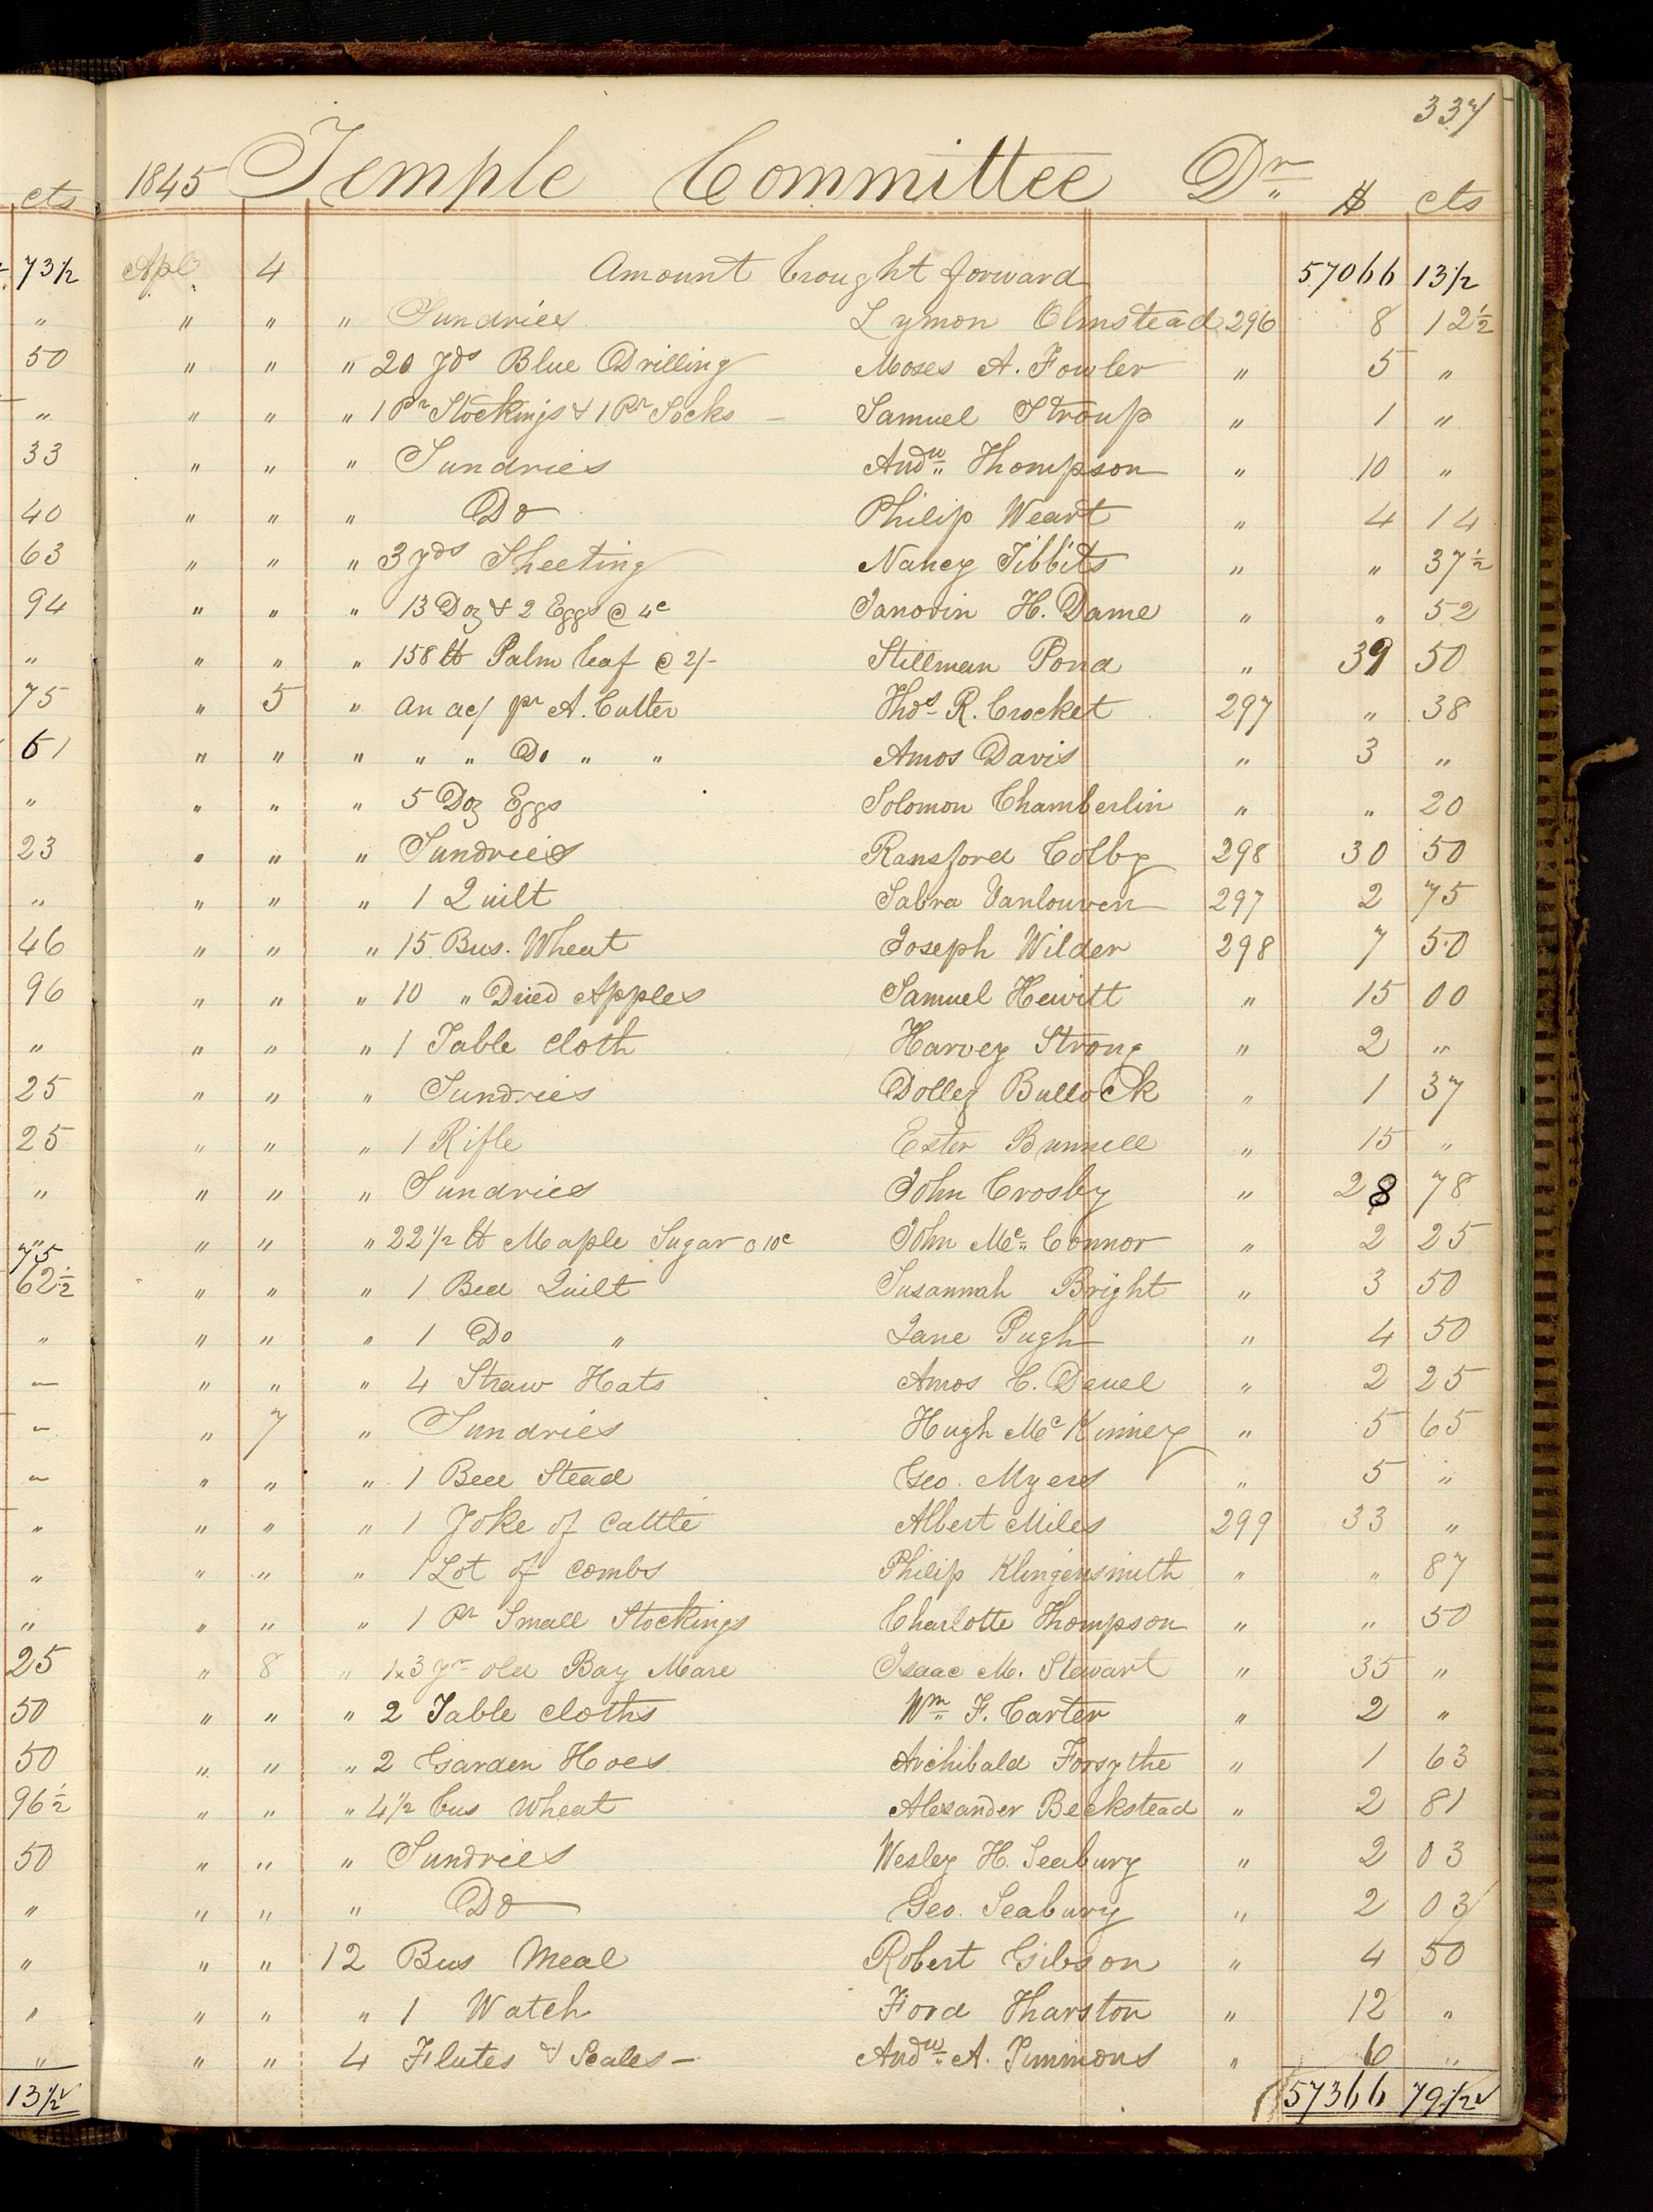 337
1845 Temple Committee Dr. $ cts
cts
73 1/2 Apl 4 Amount brought forward 57066 13 1/2
" " " " Sundries Lymon Olmstead 296 8 12 1/2
50 " " " 20 Yds Blue Drilling Moses A. Fowler " 5 "
" " " " 1 Pr Stockings & 1 Pr Socks — Samuel Stroup " 1 "
33 " " " Sundries Andw. Thompson " 10 "
40 " " " Do Philip Weart " 4 14
63 " " " 3 yds Sheeting Nancy Tibbits " " 37 1/2
94 " " " 13 Doz & 2 Eggs @ 4c Janorin H. Dame " " 52
" " " " 158 lb Palm leaf @ 2/- Stillman Pond " 39 50
75 " 5 " an ac/ pr A. Cutter Thos R. Crocket 297 " 38
61 " " " " " Do " " Amos Davis " 3 "
" " " " 5 Doz Eggs Solomon Chamberlin " " 20
23 " " " Sundries Ransford Colby 298 30 50
" " " " 1 Quilt Sabra Vanlouven 297 2 75
46 " " " 15 Bus. Wheat Joseph Wilder 298 7 50
96 " " " 10 " Dried Apples Samuel Hewitt " 15 00
" " " " 1 Table cloth Harvey Strong " 2 "
25 " " " Sundries Dolley Bullock " 1 37
25 " " " 1 Rifle Ester Bunnell " 15 "
" " " " Sundries John Crosby " 28 78
75 " " " 22 1/2 lb Maple Sugar @ 10c John Mc. Connor " 2 25
62 1/2 " " " 1 Bed Quilt Susannah Bright " 3 50
" " " " 1 Do " Jane Pugh " 4 50
— " " " 4 Straw Hats Amos C. Deuel " 2 25
— " 7 " Sundries Hugh Mc Kinney " 5 65
— " " " 1 Bed Stead Geo. Myers " 5 "
" " " " 1 Yoke of Cattle Albert Miles 299 33 "
" " " " 1 Lot of combs Philip Klingensmith " " 87
" " " " 1 Pr Small Stockings Charlotte Thompson " " 50
25 " 8 " 1 x 3 yr old Bay Mare Isaac M. Stewart " 35 "
50 " " " 2 Table cloths Wm. F. Carter " 2 "
50 " " " 2 Garden Hoes Archibald Forsythe " 1 63
96 1/2 " " " 4 1/2 bus Wheat Alexander Beckstead " 2 81
50 " " " Sundries Wesley H. Seabury " 2 03
" " " " Do Geo. Seabury " 2 03
" " " 12 Bus Meal Robert Gibson " 4 50
" " " " 1 Watch Ford Tharston " 12 "
" " " 4 Flutes & Scales — Andw. A. Timmons " 6 "
13 1/2 57366 79 1/2